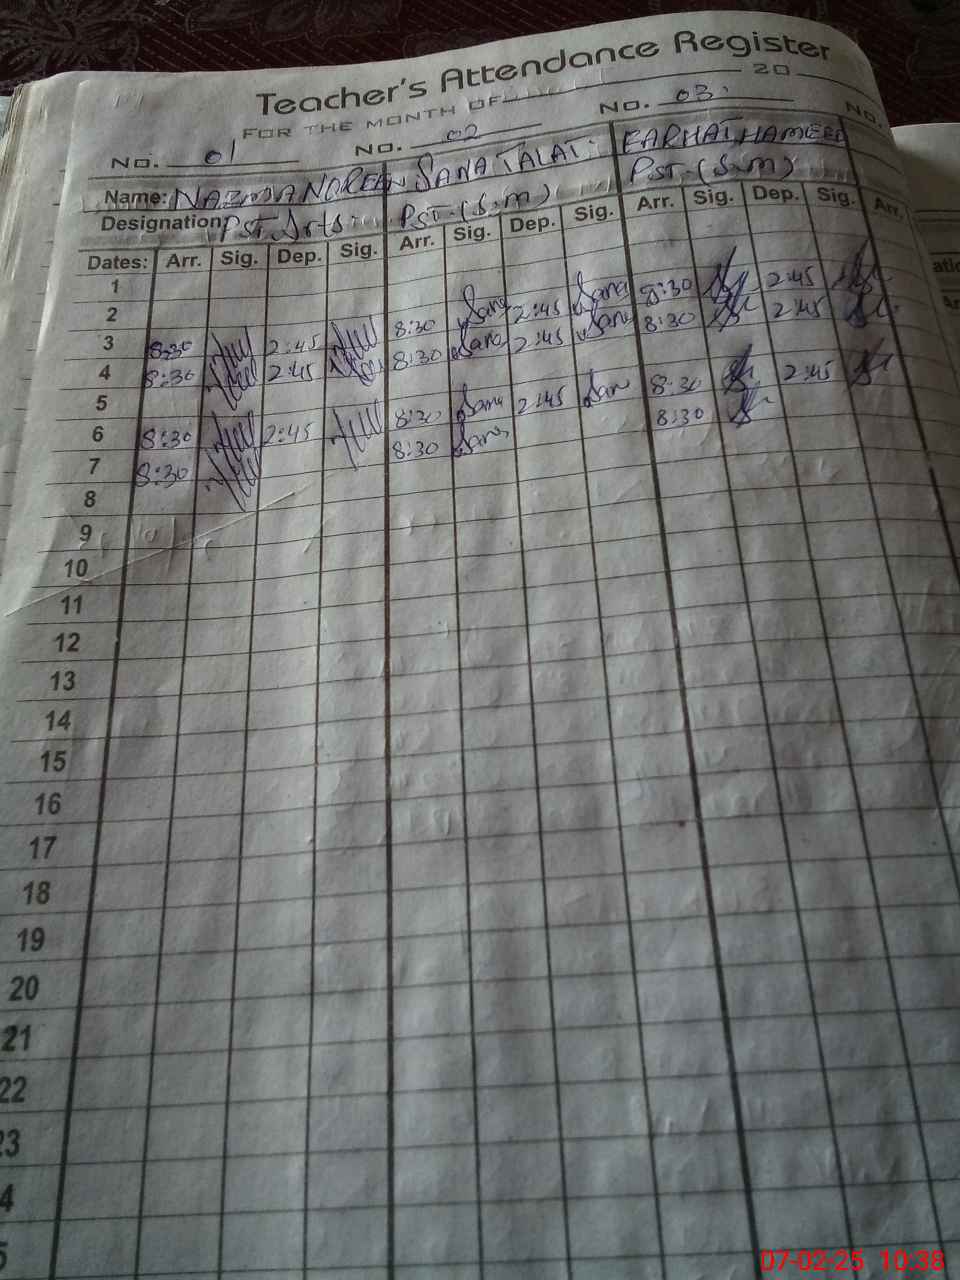 Teacher's Attendance Register
FOR THE MONTH OF 20
No. 01 No. 02 No. 03 No.
Name: NAZMA NOREEN SANA TALAT FARHAT HAMEED
Designation PST Arts PST (S.m) PST (S.m)
Dates: Arr. Sig. Dep. Sig. Arr. Sig. Dep. Sig. Arr. Sig. Dep. Sig. Arr.
1
2
3 8:30 2:45 8:30 Sana 2:45 Sana 8:30 2:45
4 8:30 2:45 8:30 Sana 2:45 Sana 8:30 2:45
5
6 8:30 2:45 8:30 Sana 2:45 Sana 8:30 2:45
7 8:30 8:30 Sana 8:30
8
9
10
11
12
13
14
15
16
17
18
19
20
21
22
23
4
5
07-02-25 10:38